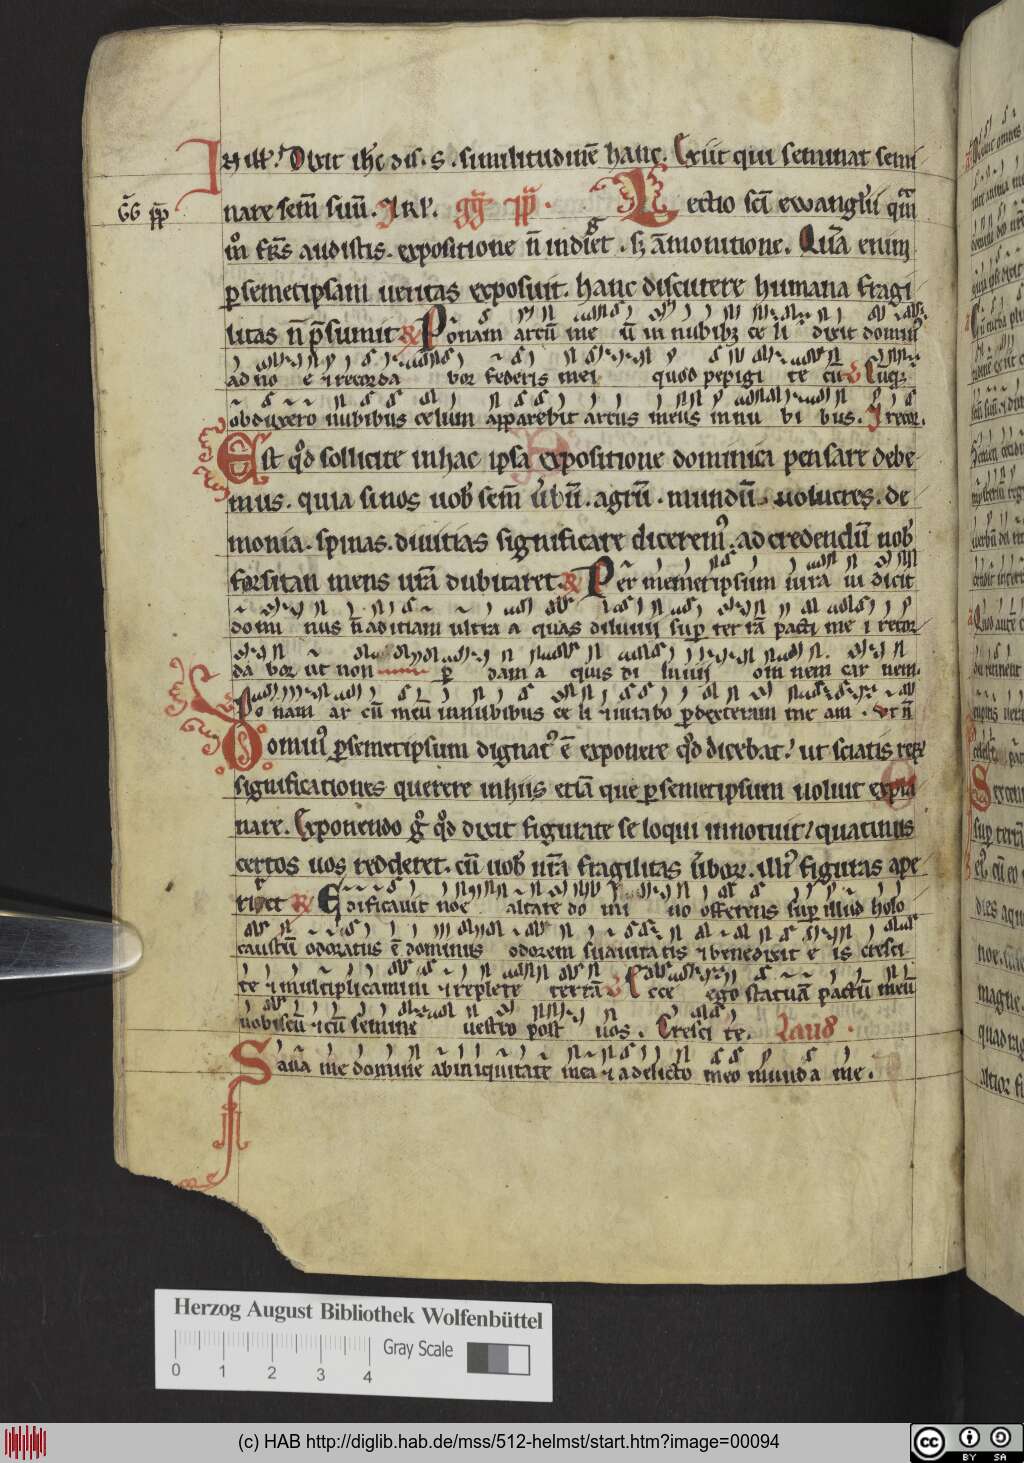 In ill'. Dixit ihc dis. s. similitudinē hanc. Exiit qui seminat semi
nare semē suū. J R Pͥ. gg̅ pp̅. Lectio scī ewanglii qm̄
GG pp̅
m̊ frs̄ audistis. expositione n̄ indiget. sȝ āmonitione. Quā enim
ꝑsemetipsam ueritas exposuit. hanc discutere humana fragi
litas n̄ p̄sumit. R̸ Ponam arcū me ū in nubibȝ ce li dixit dominꝰ
ad no e ⁊ recorda bor federis mei quod pepigi te cū V Cūqꝫ
obduxero nubibus celum apparebit arcus meus in nu bi bus. J recor.
Est qd̊ sollicite in hac ipsa expositione dominica pensare debe
mus. quia si nos uob̄ sem̄ ūbū. agrū. mundū. uolucres. de
monia. spinas. diuitias significare diceremꝰ. ad credendū uob̄
forsitan mens urā dubitaret. R̸ Per memetipsum iura ui dicit
domi nus n̄ adiciam ultra a quas diluuii suꝑ ter rā pacti me i recor
da bor ut non ꝑ dam a quis di luuii om nem car nem.
V Po nam ar cū meū in nubibus ce li ⁊ iurabo ꝑ dexteram me am. Vt n̄
Dominꝰ ꝑsemetipsum dignatꝰ ē exponere qd̊ dicebat. ut sciatis reꝝ
significationes querere in hiis etiā que ꝑsemetipsum noluit expla
nare. Exponendo g̊ qd̊ dixit figurate se loqui innotuit. quatinus
certos uos redderet. cū uob̄ nrā fragilitas ūboꝝ. illiꝰ figuras ape
riret R̸ Edificauit noe altare do mi no offerens suꝑ illud holo
caustū odoratus ē dominus odorem suauitatis ⁊ benedixit e is cresci
te ⁊ multiplicamini ⁊ replete terrā V Ecce ego statuā pactū meū
uobiscū ⁊ cū semine uestro post uos. Cresci te. Laud̄.
Saluā me domine ab iniquitate mea ⁊ a delicto meo munda me.
Herzog August Bibliothek Wolfenbüttel
0 1 2 3 4 Gray Scale
(c) HAB http://diglib.hab.de/mss/512-helmst/start.htm?image=00094
cc BY SA